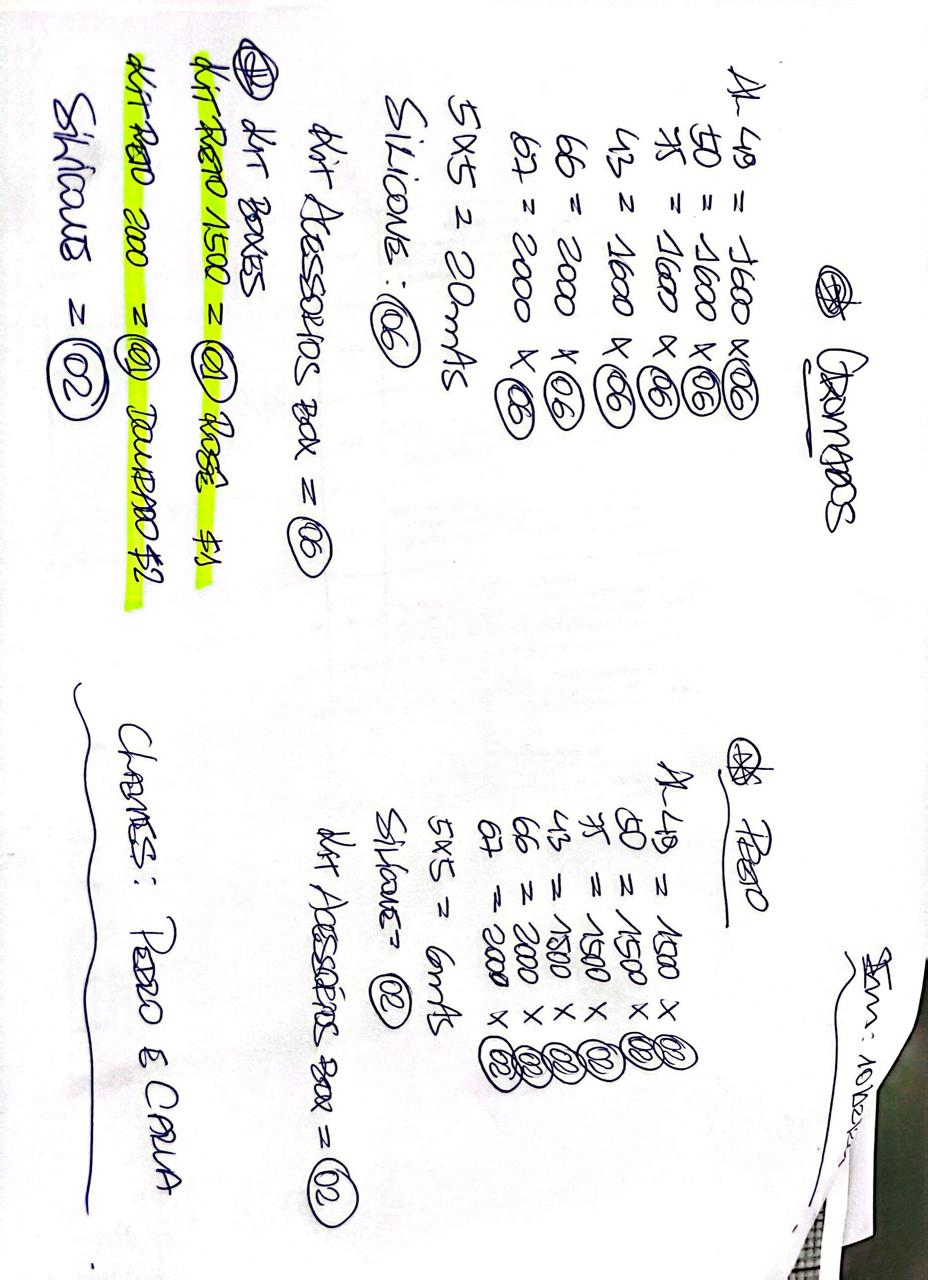 CROMADOS
AL-49 = 1600 x 06
50 = 1600 x 06
75 = 1600 x 06
43 = 1600 x 06
66 = 2000 x 06
67 = 2000 x 06
5x5 = 20mAs
SILICONE: 06
KIT ACESSORIOS BOX = 06
KIT BOXES
KIT RETO 1500 = 01 ROSÊ $1
KIT RETO 2000 = 01 DOURADO $2
SILICONE = 02
AL-49 = 1500 x 02
50 = 1500 x 02
75 = 1500 x 02
43 = 1500 x 02
66 = 2000 x 02
67 = 2000 x 02
5x5 = 6mAs
SILICONE = 02
KIT ACESSÓRIOS BOX = 02
PEDRO E CARLA